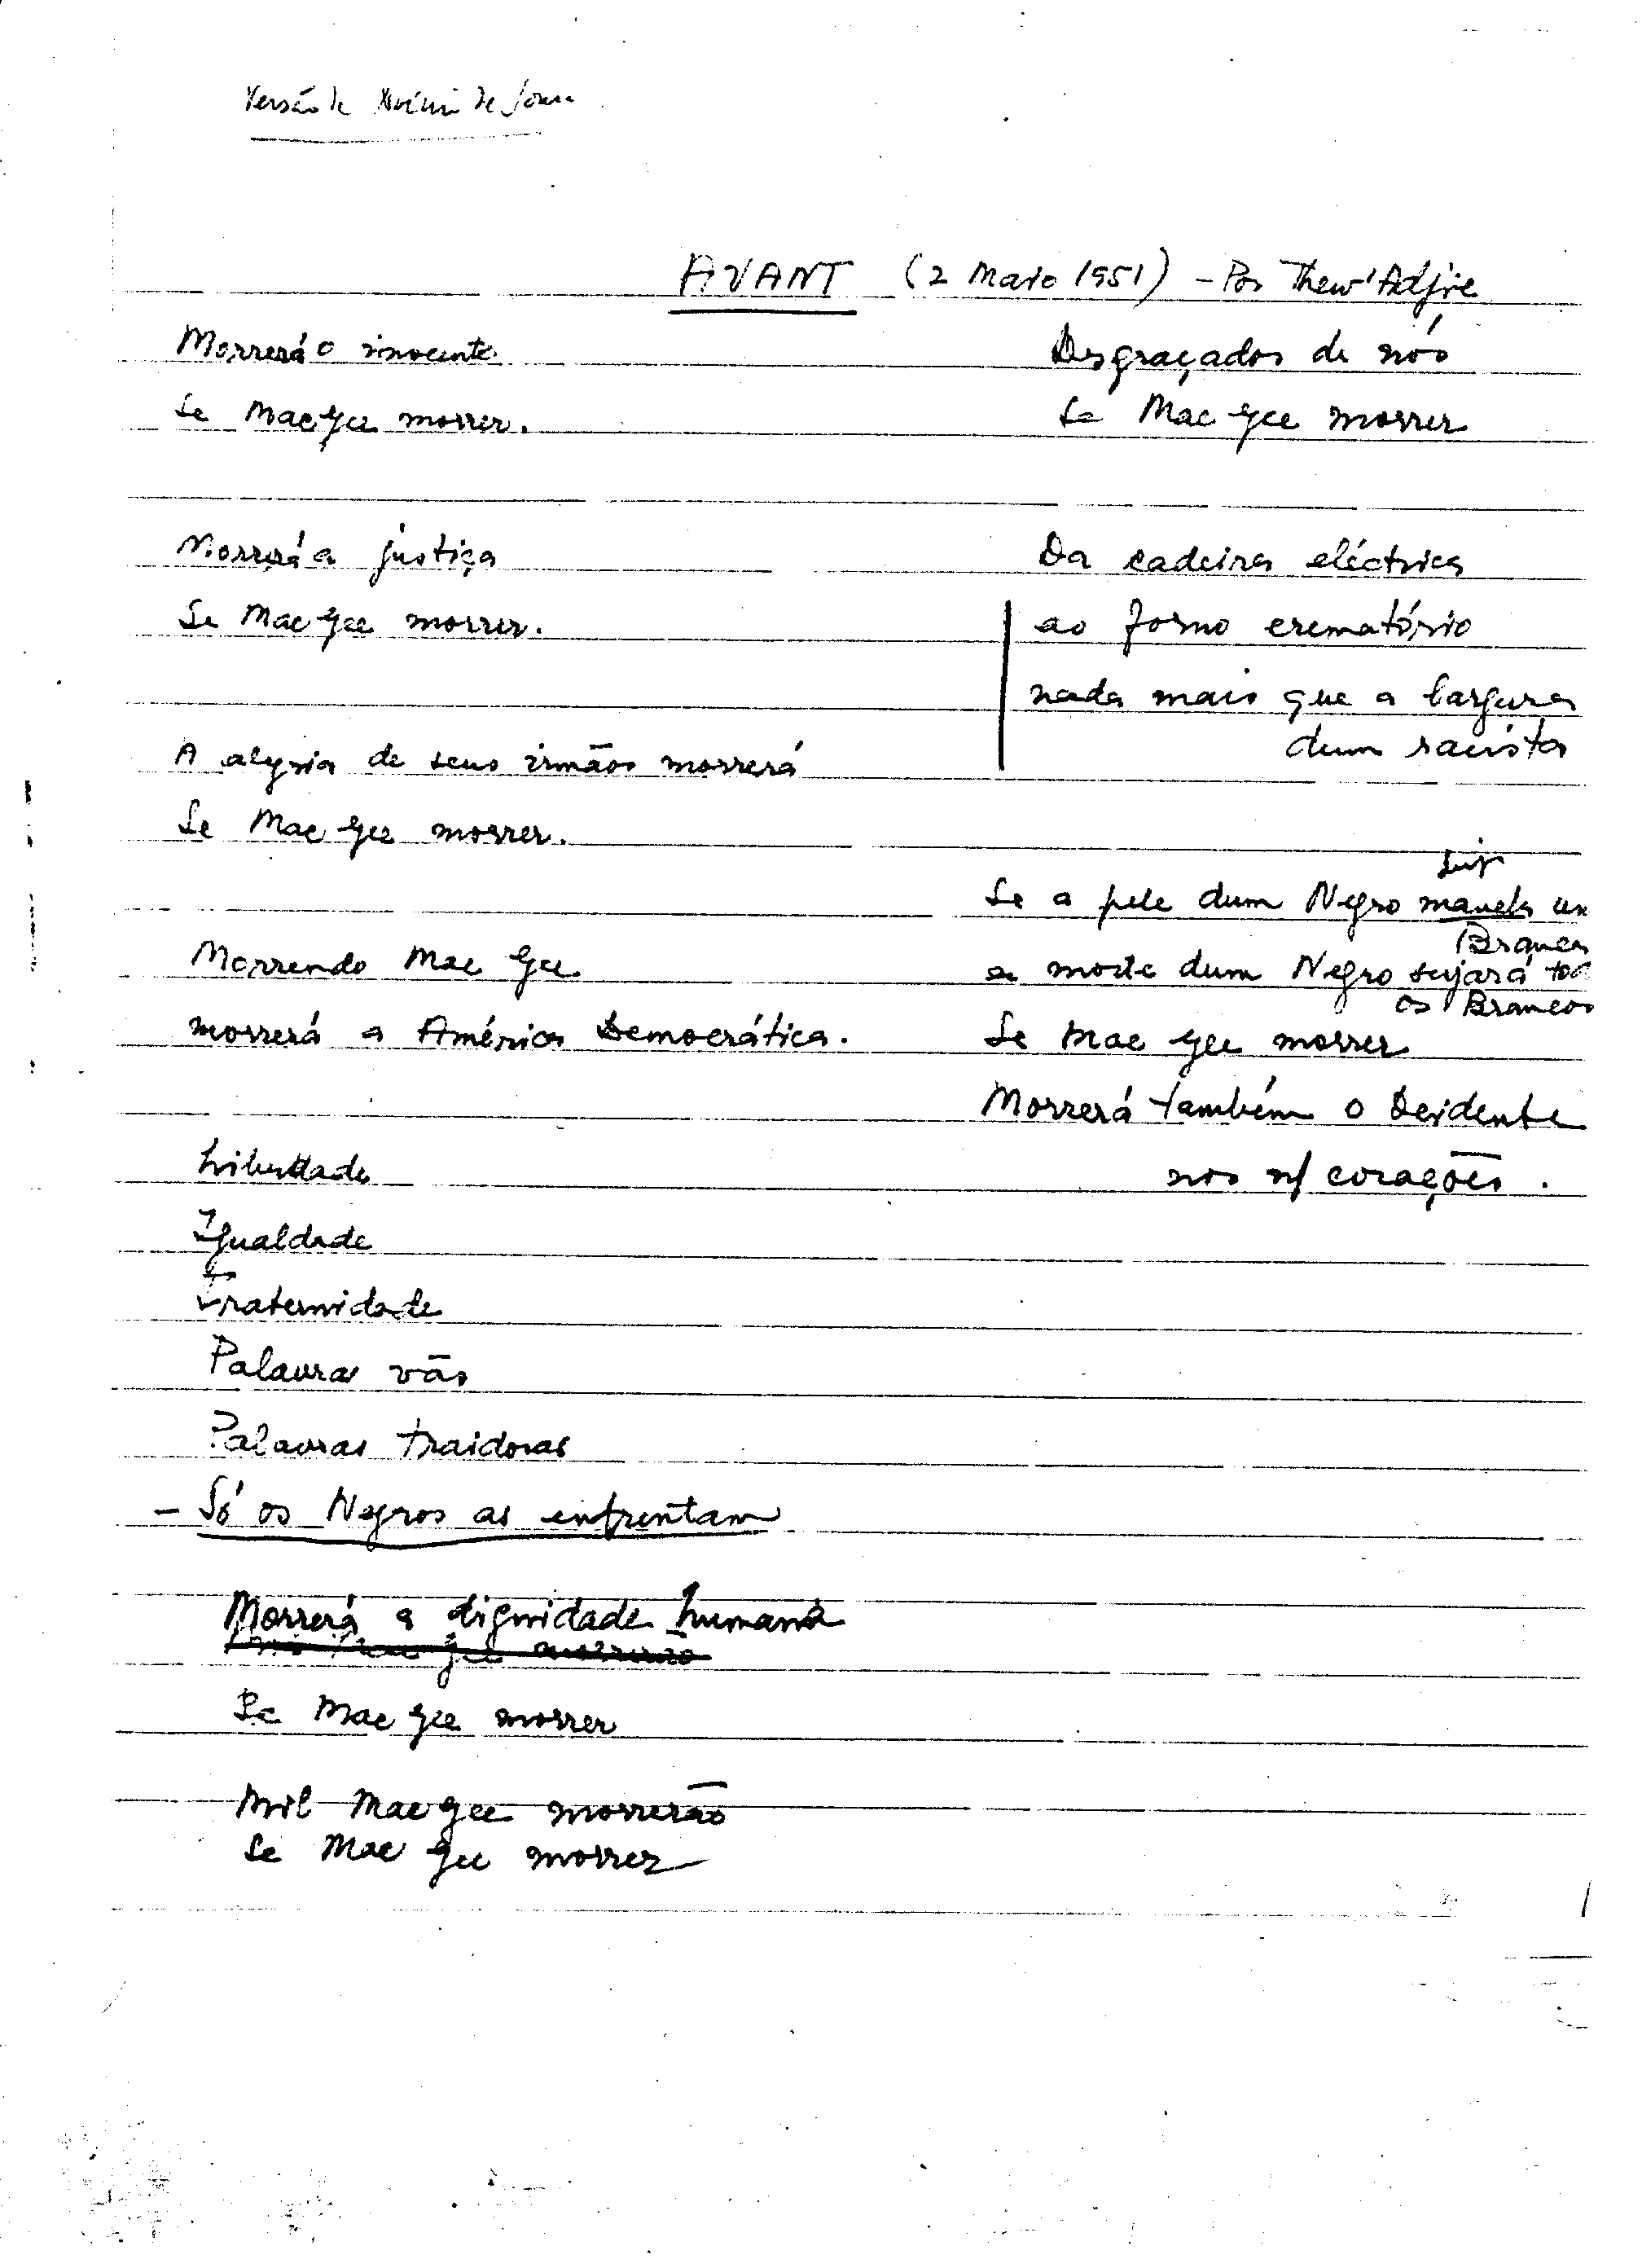 Versão de Noémia de Sousa
AVANT (2 Maio 1951) - Por Thew'Adjie
Morrerá o inocente.
Se Mac Gee morrer.
Morrerá a justiça
Se Mac Gee morrer.
A alegria de seus irmãos morrerá
Se Mac Gee morrer.
Morrendo Mac Gee
morrerá a América Democrática.
Liberdade
Igualdade
Fraternidade
Palavras vãs
Palavras traidoras
- Só os Negros as enfrentam
Morrerá a dignidade humana
Se Mac Gee morrer
Mil Mac Gee morrerão
Se Mac Gee morrer
Desgraçados de nós
Se Mac Gee morrer
Da cadeira eléctrica
ao forno crematório
nada mais que a largura
dum racista
Se a pele dum Negro mancha um
Branco
a morte dum Negro sujará
os Brancos
Se Mac Gee morrer
Morrerá também o Ocidente
nos n/ corações.